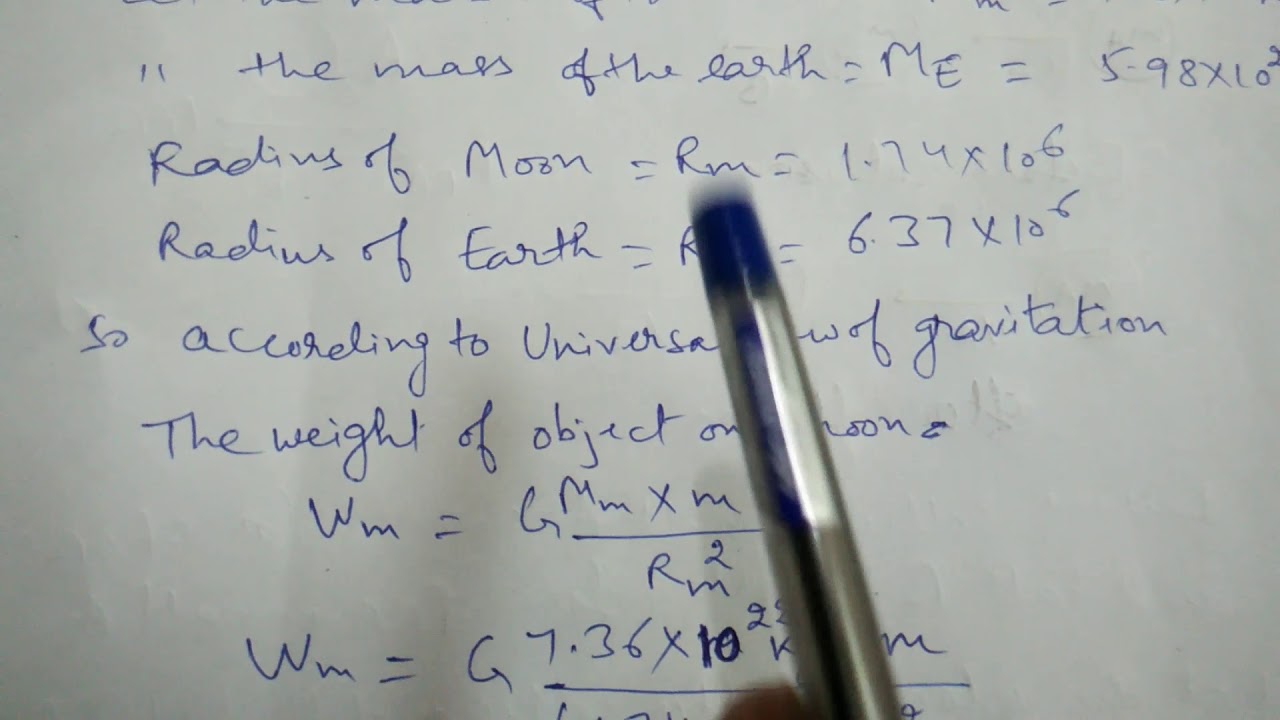 " the mass of the earth = ME = 5.98×10²
Radius of Moon = Rm = 1.74×10⁶
Radius of Earth = R = 6.37×10⁶
So according to Universa w of gravitation
The weight of object on moon =
Wm = G Mm × m
Rm²
Wm = G 7.36×10²² K m